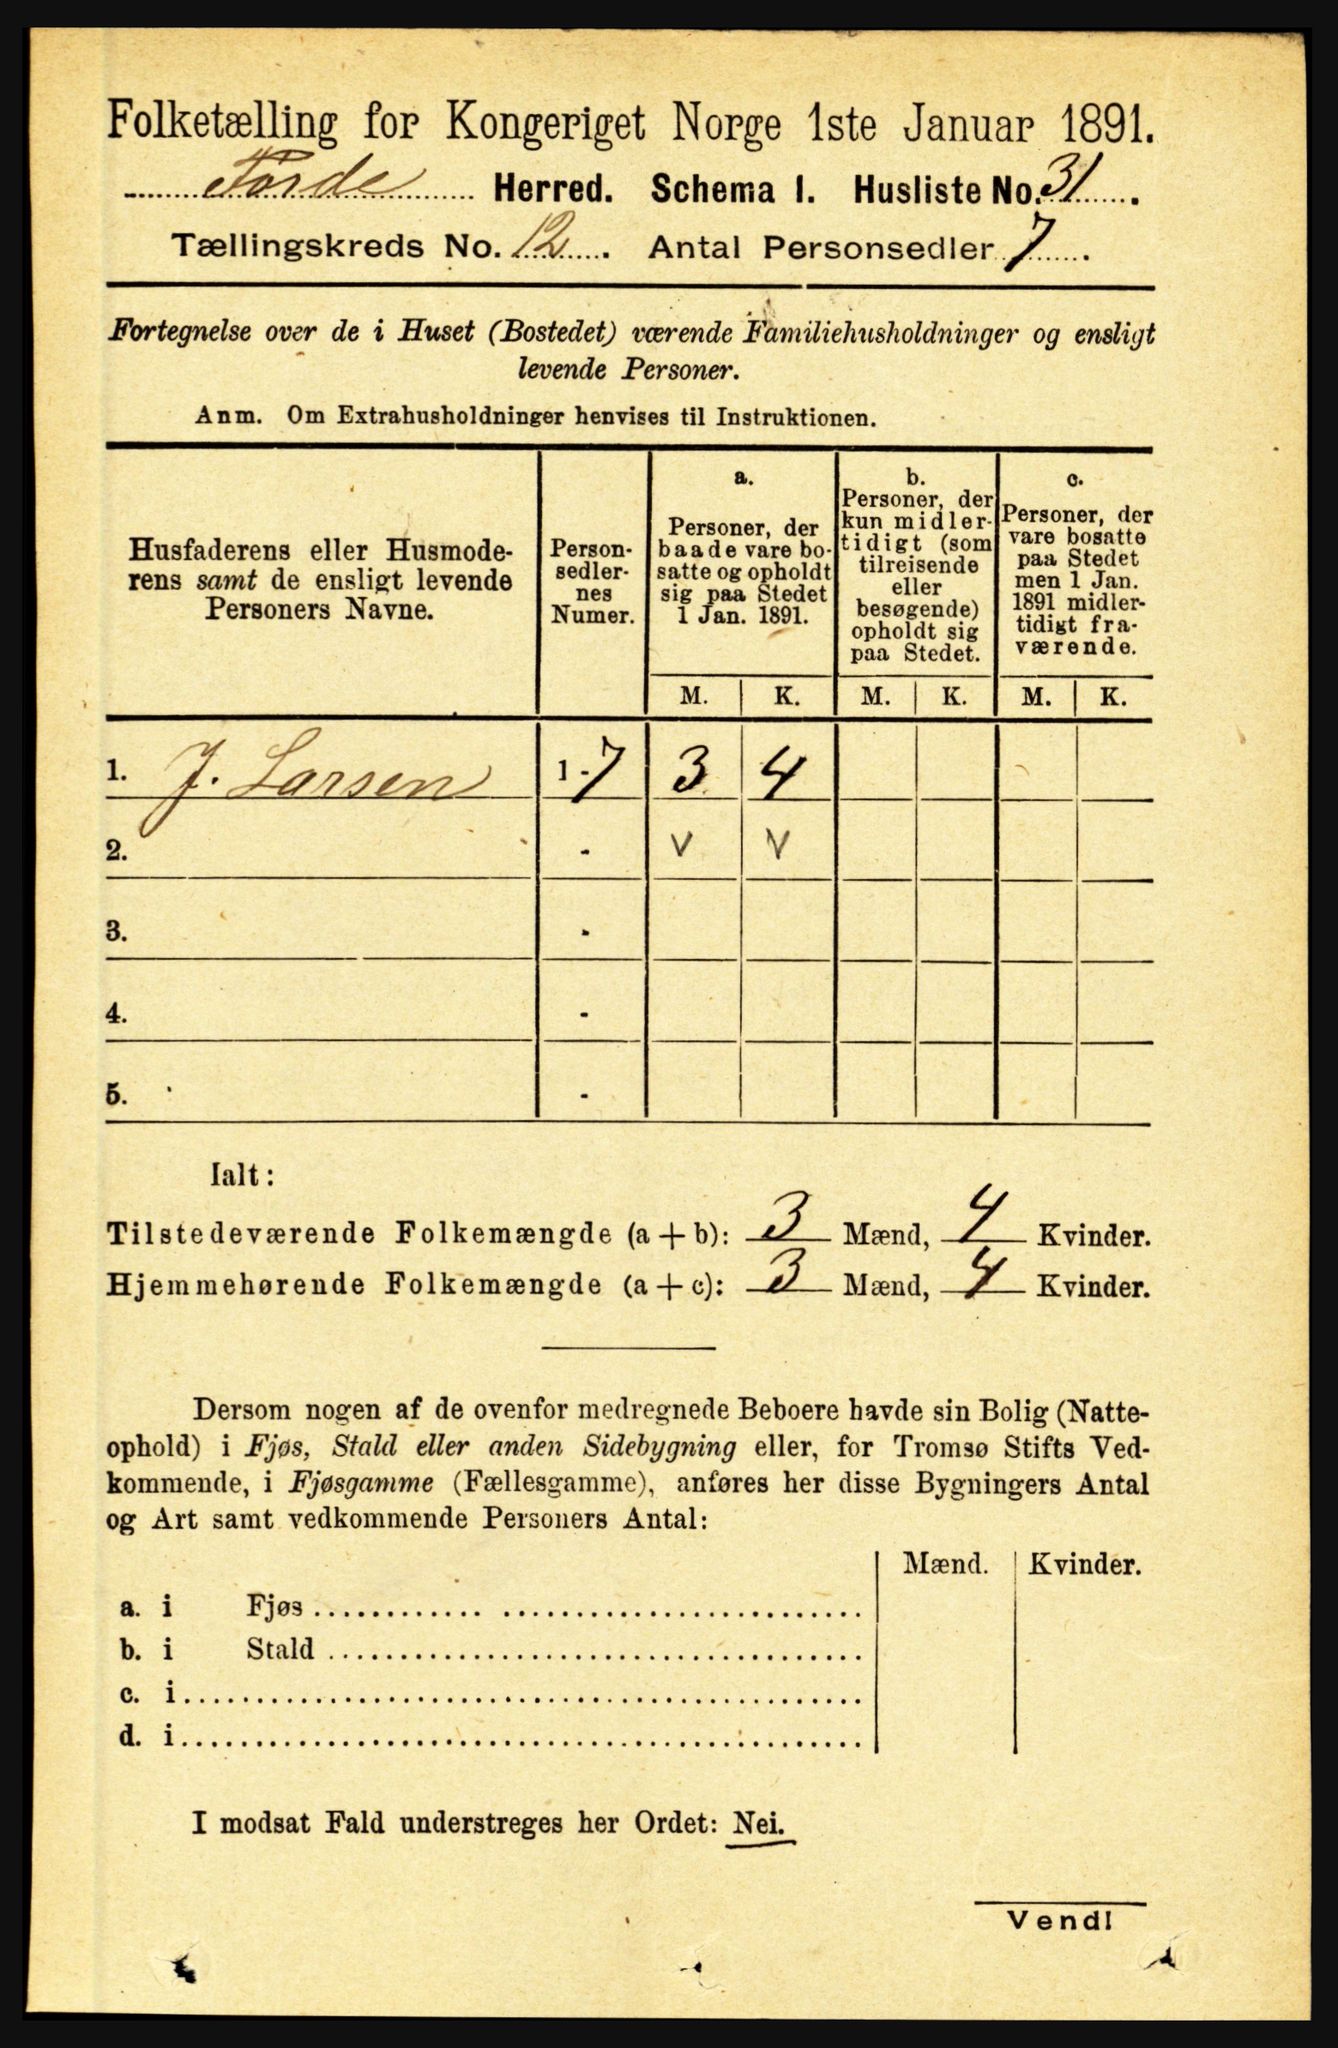 Folketælling for Kongeriget Norge 1ste Januar 1891.
Førde Herred. Schema 1. Husliste No. 31.
Tællingskreds No. 12. Antal Personsedler 7.
Fortegnelse over de i Huset (Bostedet) værende Familiehusholdninger og ensligt
levende Personer.
Anm. Om Extrahusholdninger henvises til Instruktionen.
Husfaderens eller Husmode-
rens samt de ensligt levende
Personers Navne.
Person-
sedler-
nes
Numer.
a.
Personer, der
baade vare bo-
satte og opholdt
sig paa Stedet
1 Jan. 1891.
b.
Personer, der
kun midler-
tidigt (som
tilreisende
eller
besøgende)
opholdt sig
paa Stedet.
c.
Personer, der
vare bosatte
paa Stedet
men 1 Jan.
1891 midler-
tidigt fra-
værende.
M. K. M. K. M. K.
1. J. Larsen 1 - 7 3 4
2. - v v
3. -
4. -
5. -
Ialt:
Tilstedeværende Folkemængde (a + b): 3 Mænd, 4 Kvinder.
Hjemmehørende Folkemængde (a + c): 3 Mænd, 4 Kvinder.
Dersom nogen af de ovenfor medregnede Beboere havde sin Bolig (Natte-
ophold) i Fjøs, Stald eller anden Sidebygning eller, for Tromsø Stifts Ved-
kommende, i Fjøsgamme (Fællesgamme), anføres her disse Bygningers Antal
og Art samt vedkommende Personers Antal:
Mænd. Kvinder.
a. i Fjøs
b. i Stald
c. i
d. i
I modsat Fald understreges her Ordet: Nei.
Vend!